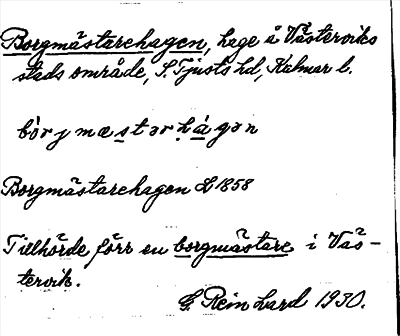 Borgmästarehagen, hage å Västerviks
stads område, S. Tjusts hd, Kalmar l.
bòrjmæstərhágən
Borgmästarehagen L 1858
Tillhörde förr en borgmästare i Väs-
tervik.
G. Reinhard 1930.